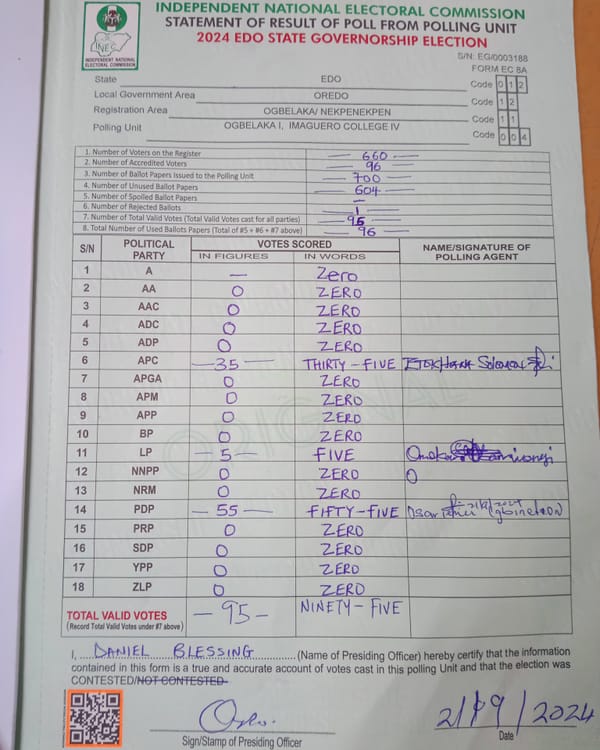 INDEPENDENT NATIONAL ELECTORAL COMMISSION
STATEMENT OF RESULT OF POLL FROM POLLING UNIT
2024 EDO STATE GOVERNORSHIP ELECTION
INEC
INDEPENDENT NATIONAL ELECTORAL COMMISSION
S/N: EG/0003188
FORM EC 8A
State EDO Code 0 1 2
Local Government Area OREDO Code 1 2
Registration Area OGBELAKA/ NEKPENEKPEN Code 1 1
Polling Unit OGBELAKA I, IMAGUERO COLLEGE IV Code 0 0 4
1. Number of Voters on the Register — 660 —
2. Number of Accredited Voters 96
3. Number of Ballot Papers Issued to the Polling Unit — 700 —
4. Number of Unused Ballot Papers — 604 —
5. Number of Spoiled Ballot Papers —
6. Number of Rejected Ballots — 1 —
7. Number of Total Valid Votes (Total Valid Votes cast for all parties) — 95 —
8. Total Number of Used Ballots Papers (Total of #5 + #6 + #7 above) — 96 —
S/N POLITICAL PARTY VOTES SCORED NAME/SIGNATURE OF POLLING AGENT
IN FIGURES IN WORDS
1 A — Zero
2 AA 0 ZERO
3 AAC 0 ZERO
4 ADC 0 ZERO
5 ADP 0 ZERO
6 APC —35— THIRTY-FIVE
7 APGA 0 ZERO
8 APM 0 ZERO
9 APP 0 ZERO
10 BP 0 ZERO
11 LP —5— FIVE
12 NNPP 0 ZERO 0
13 NRM 0 ZERO
14 PDP —55— FIFTY-FIVE
15 PRP 0 ZERO
16 SDP 0 ZERO
17 YPP 0 ZERO
18 ZLP 0 ZERO
TOTAL VALID VOTES —95— NINETY-FIVE
(Record Total Valid Votes under #7 above)
ORIGINAL
I, DANIEL BLESSING (Name of Presiding Officer) hereby certify that the information
contained in this form is a true and accurate account of votes cast in this polling Unit and that the election was
CONTESTED/NOT CONTESTED
21/9/2024
Sign/Stamp of Presiding Officer Date